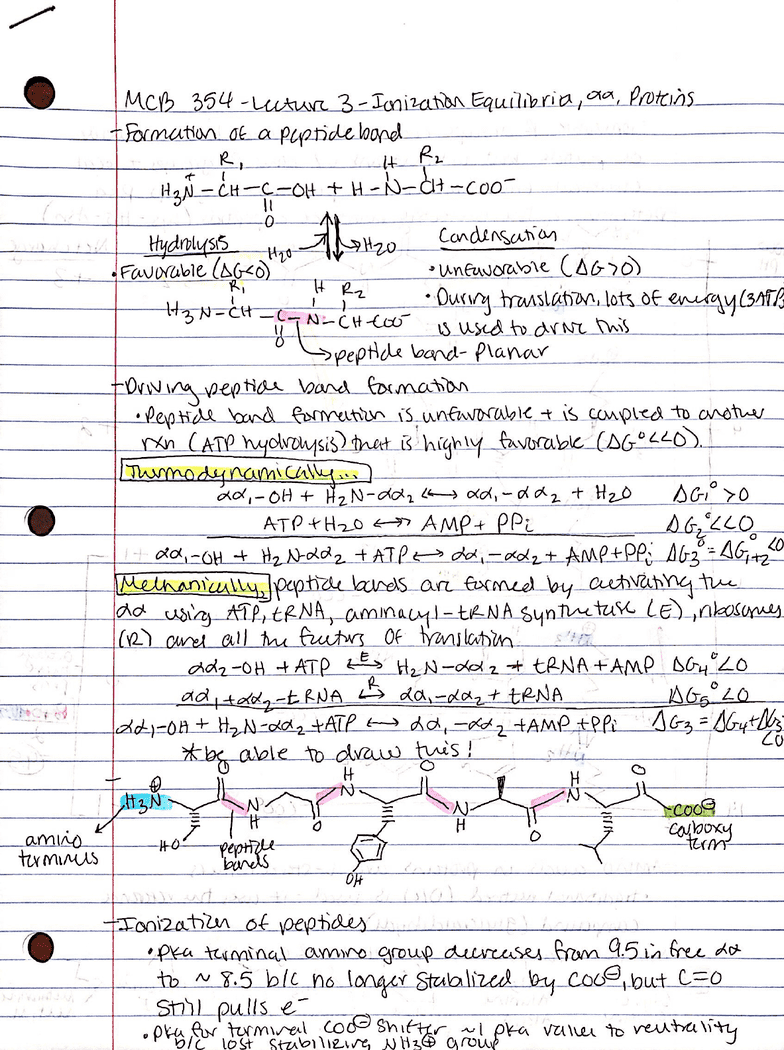 MCB 354 - Lecture 3 - Ionization Equilibria, αα, Proteins
- Formation of a peptide bond
R1 H R2
H3N+ - CH - C - OH + H - N - CH - COO-
O
Hydrolysis H2O H2O Condensation
• Favorable (ΔG<0) • unfavorable (ΔG>0)
R1 H R2 • During translation, lots of energy (3ATP)
H3N - CH - C - N - CH - COO- is used to drive this
O
peptide bond - Planar
- Driving peptide bond formation
• Peptide bond formation is unfavorable + is coupled to another
rxn (ATP hydrolysis) that is highly favorable (ΔG°<<0).
Thermodynamically...
αα1-OH + H2N-αα2 ↔ αα1-αα2 + H2O ΔG1°>0
ATP + H2O ↔ AMP + PPi ΔG2°<<0
αα1-OH + H2N-αα2 + ATP ↔ αα1-αα2 + AMP + PPi ΔG3°=ΔG1+2°<0
Mechanically, peptide bonds are formed by activating the
αα using ATP, tRNA, aminacyl-tRNA synthetase (E), ribosomes
(R) and all the factors of translation
αα2-OH + ATP ⇄E H2N-αα2 + tRNA + AMP ΔG4°<0
αα1 + αα2-tRNA ⇄R αα1-αα2 + tRNA ΔG5°<0
αα1-OH + H2N-αα2 + ATP ↔ αα1-αα2 + AMP + PPi ΔG3 = ΔG4 + ΔG3
<0
*be able to draw this!
O H O H O
H3N⊕ N N N N COO⊖
H O H O
amino HO peptide carboxy
terminus bonds term
OH
- Ionization of peptides
• pKa terminal amino group decreases from 9.5 in free αα
to ~ 8.5 b/c no longer stabilized by COO⊖, but C=O
still pulls e-
• pKa for terminal COO⊖ shifter ~1 pKa value to neutrality
b/c lost stabilizing NH3⊕ group